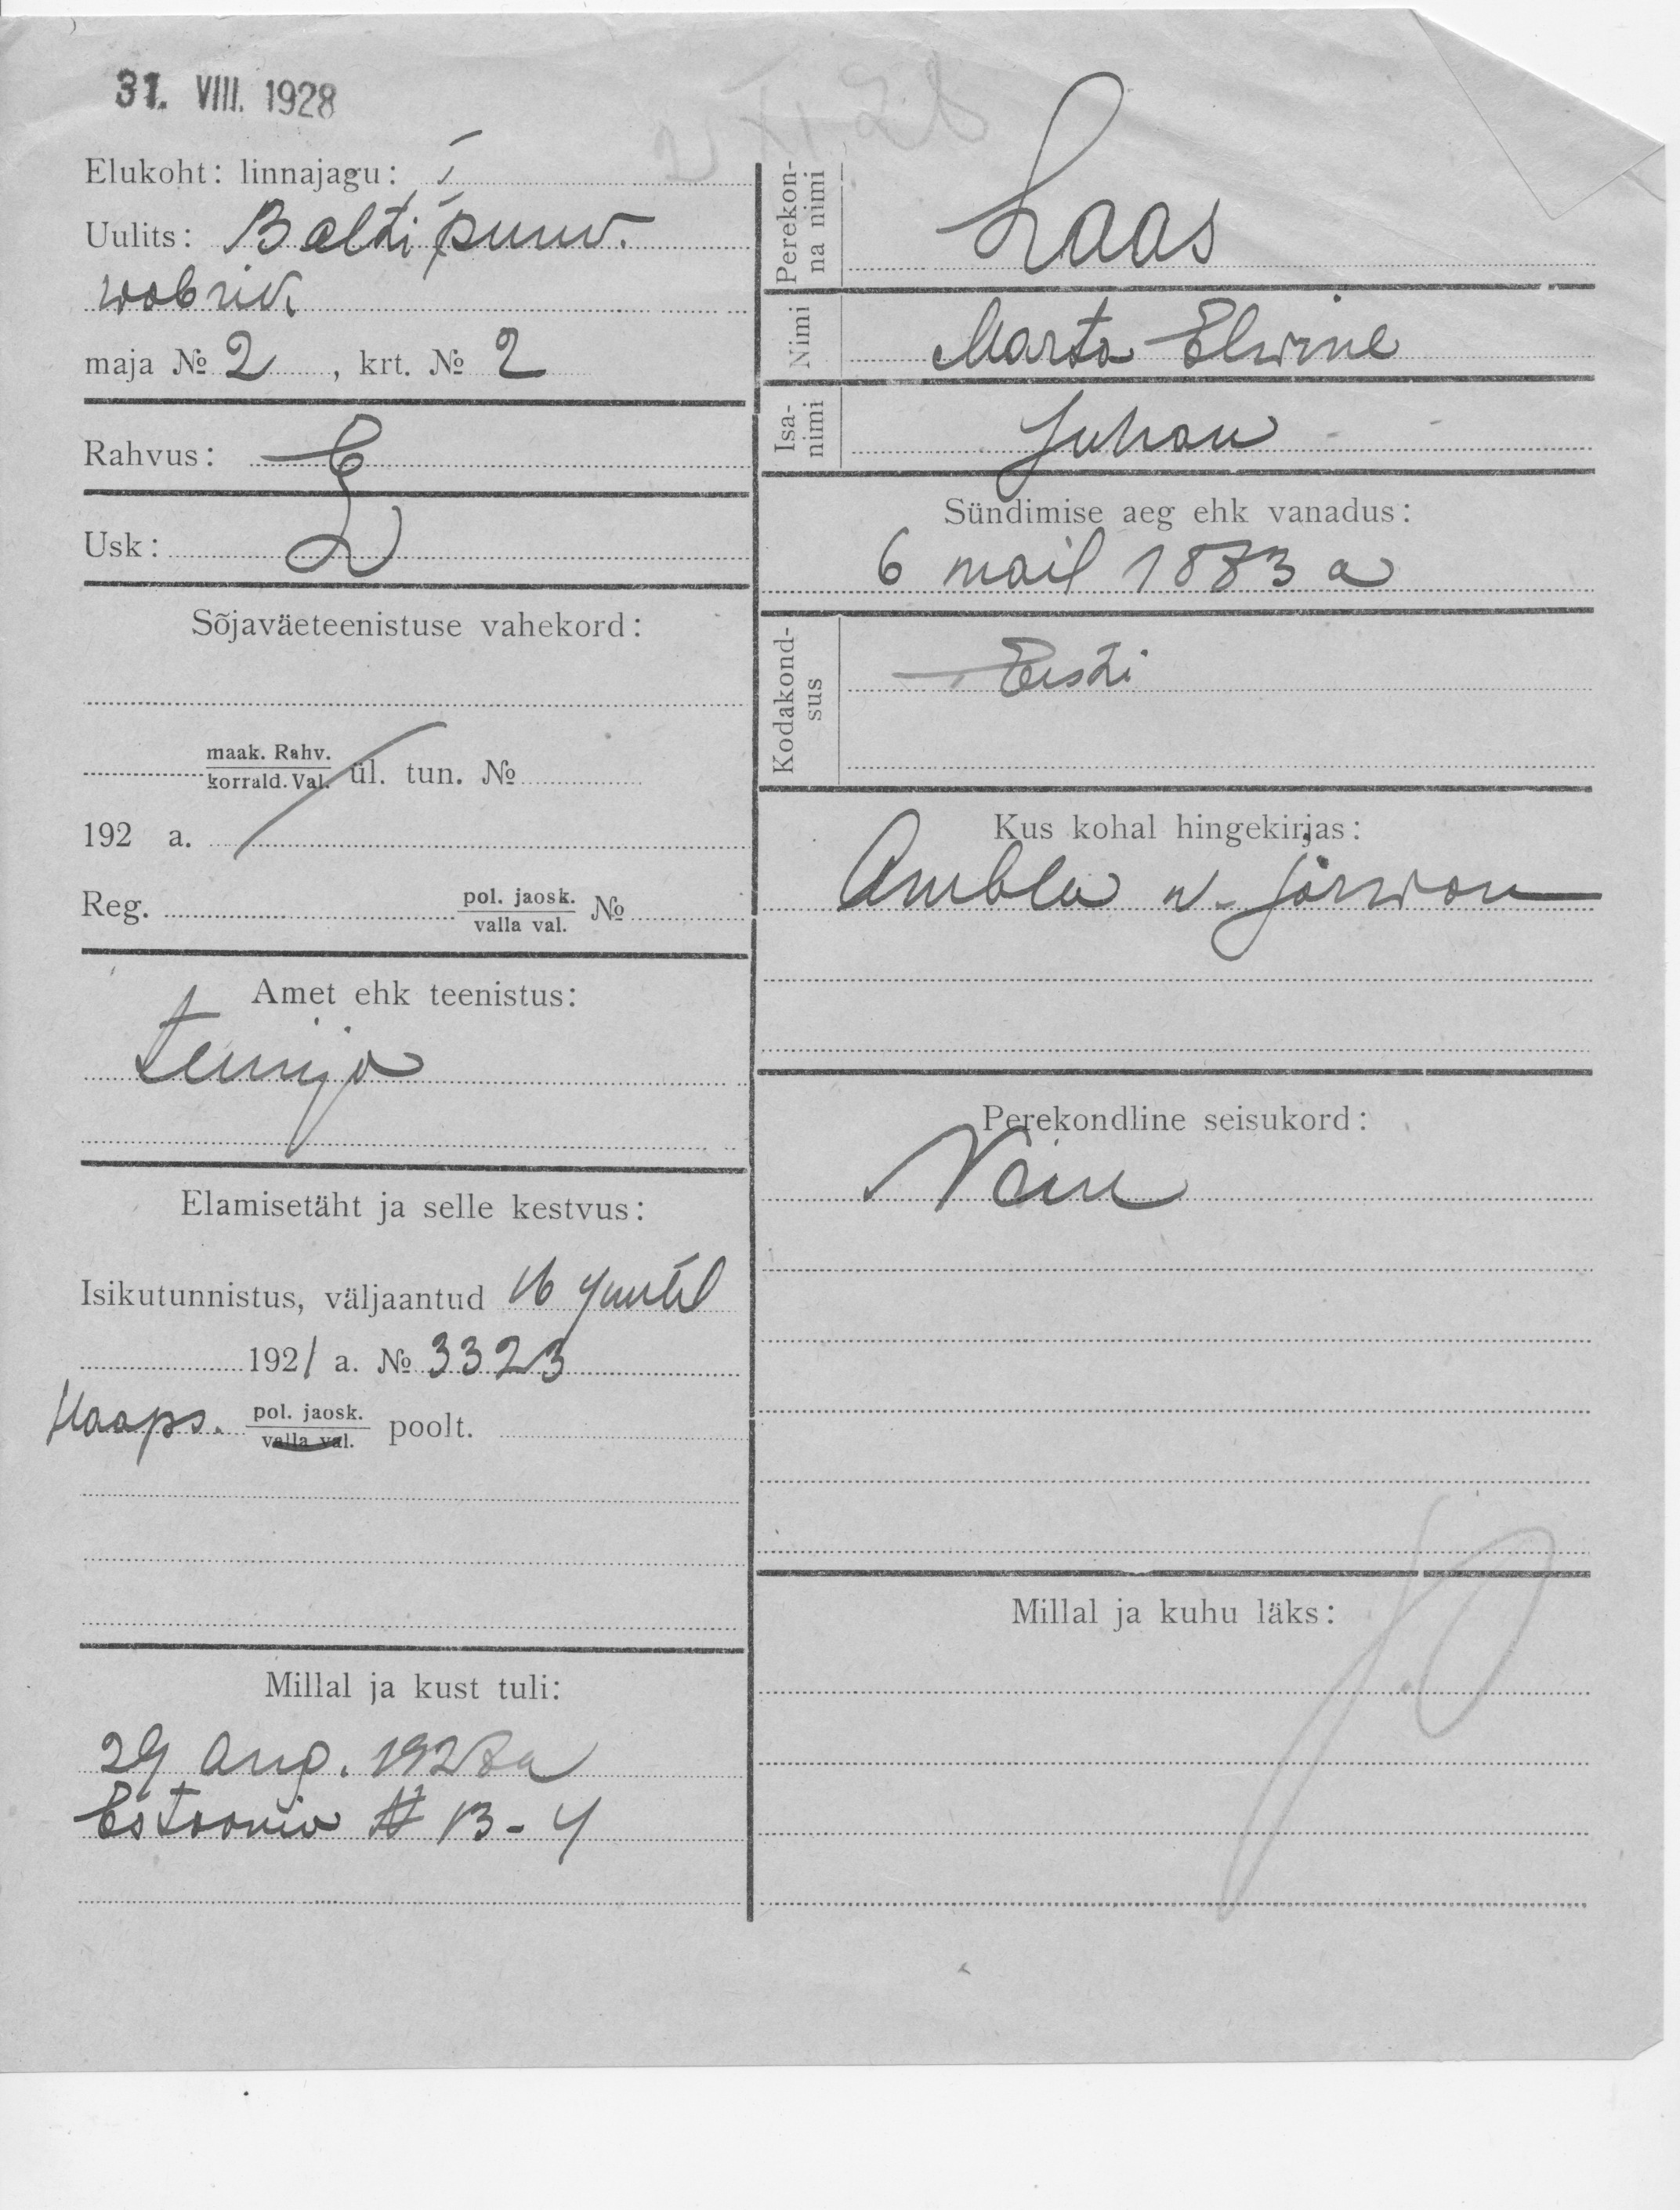 31. VIII. 1928
Elukoht: linnajagu: I
Uulits: Balti puuw.
wabrik
maja № 2, krt. № 2
Rahvus: E
Usk: L
Sõjaväeteenistuse vahekord:
maak. Rahv.
korrald. Val. ül. tun. №
192 a.
Reg. pol. jaosk.
valla val. №
Amet ehk teenistus:
teenija
Elamisetäht ja selle kestvus:
Isikutunnistus, väljaantud 16 juulil
1921 a. № 3323
Haaps. pol. jaosk.
valla val. poolt.
Millal ja kust tuli:
29 aug. 1928 a
Estoonia № 13-4
Perekonna nimi
Laas
Nimi
Marta Elwine
Isanimi
Juhan
Sündimise aeg ehk vanadus:
6 mail 1883 a
Kodakondsus
Eesti
Kus kohal hingekirjas:
Ambla w. Järwan
Perekondline seisukord:
Millal ja kuhu läks: